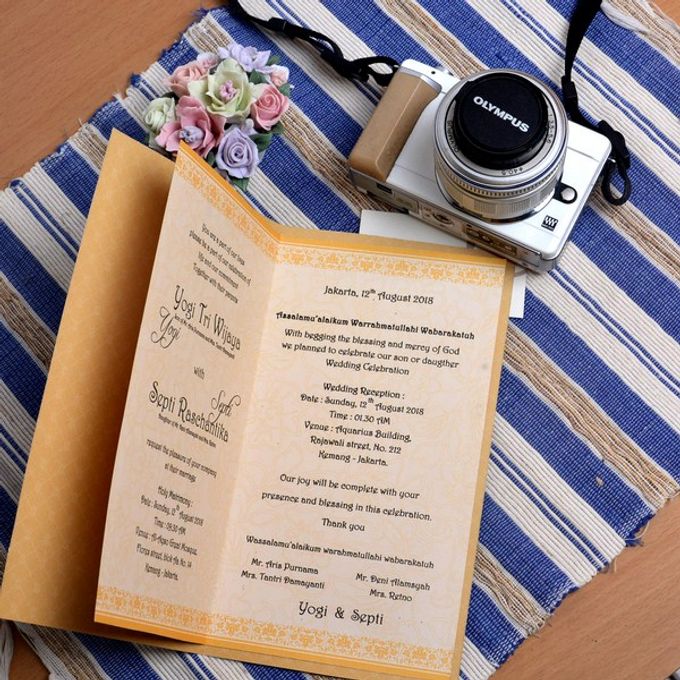 OLYMPUS
You are a part of our lives
please be a part of our celebration of
life and our commitment
Together with their parents
Yogi Tri Wijaya
Yogi
with
Septi
Septi Raschantika
request the pleasure of your company
at their marriage
Holy Matrimony :
Date : Sunday, 12th August 2018
Time : 08.30 AM
Venue : Al-Aqso Grosi Mosque,
Florea street, blok Aa No. 14
Kemang - Jakarta.
Jakarta, 12th August 2018
Assalamu'alaikum Warrahmatullahi Wabarakatuh
With begging the blessing and mercy of God
we planned to celebrate our son or daugther
Wedding Celebration
Wedding Reception :
Date : Sunday, 12th August 2018
Time : 01.30 AM
Venue : Aquarius Building,
Rajawali street, No. 212
Kemang - Jakarta.
Our joy will be complete with your
presence and blessing in this celebration.
Thank you
Wassalamu'alaikum warahmatullahi wabarakatuh
Mr. Aris Purnama
Mrs. Tantri Damayanti
Mr. Deni Alamsyah
Mrs. Retno
Yogi & Septi